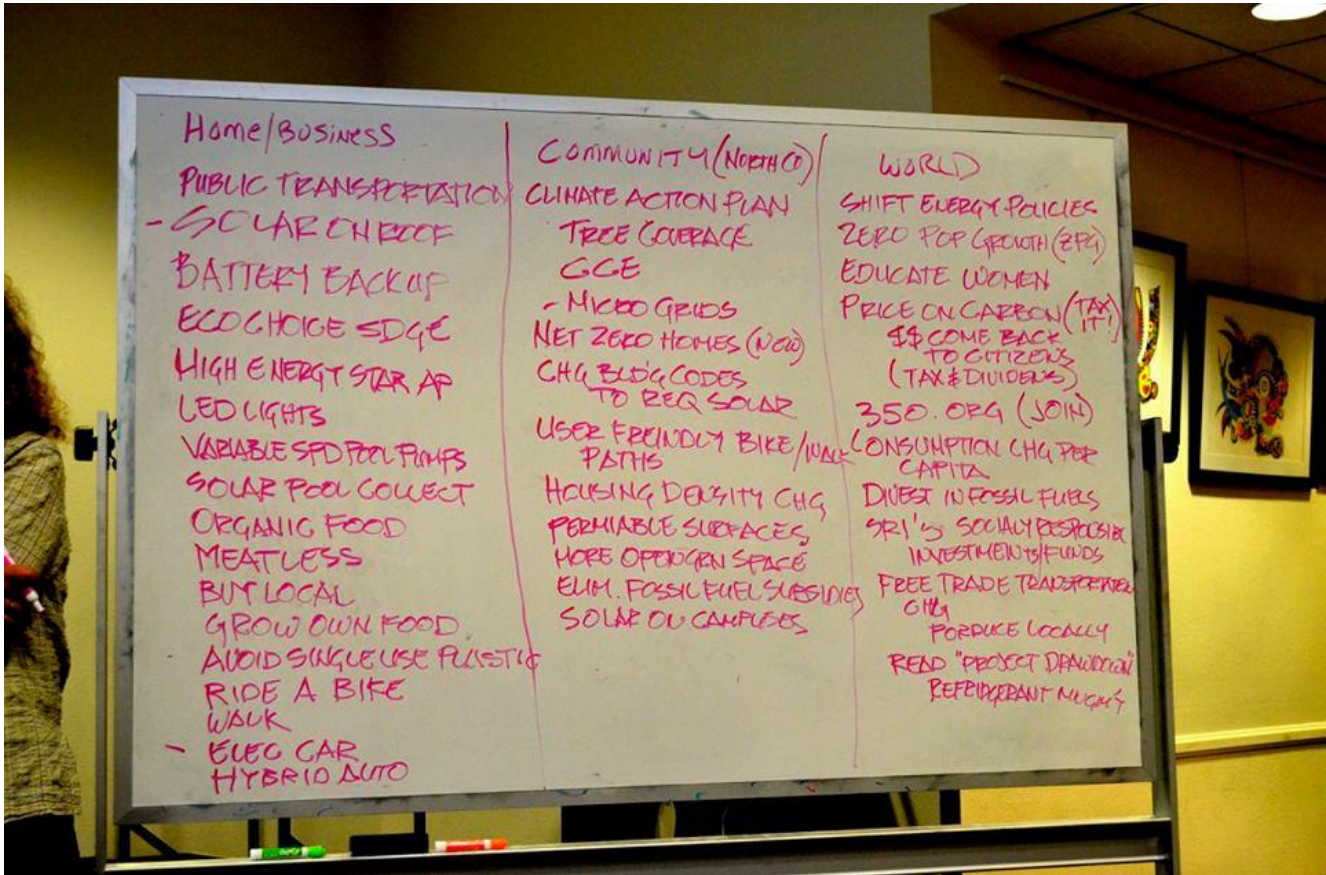 Home/Business
PUBLIC TRANSPORTATION
- SOLAR ON ROOF
BATTERY BACKUP
ECOCHOICE SDGE
HIGH ENERGY STAR AP
LED LIGHTS
VARIABLE SPD POOL PUMPS
SOLAR POOL COLLECT
ORGANIC FOOD
MEATLESS
BUY LOCAL
GROW OWN FOOD
AVOID SINGLE USE PLASTIC
RIDE A BIKE
WALK
- ELEC CAR
HYBRID AUTO
COMMUNITY (NORTH CO)
CLIMATE ACTION PLAN
TREE COVERAGE
CCE
- MICRO GRIDS
NET ZERO HOMES (NEW)
CHG BLD'G CODES
TO REQ SOLAR
USER FREINDLY BIKE/WALK
PATHS
HOUSING DENSITY CHG
PERMIABLE SURFACES
MORE OPEN GRN SPACE
ELIM. FOSSIL FUEL SUBSIDIES
SOLAR ON CAMPUSES
WORLD
SHIFT ENERGY POLICIES
ZERO POP GROWTH (ZPG)
EDUCATE WOMEN
PRICE ON CARBON (TAX IT!)
$$ COME BACK
TO CITIZENS
(TAX & DIVIDENS)
350.ORG (JOIN)
CONSUMPTION CHG PER
CAPITA
DIVEST IN FOSSIL FUELS
SRI's SOCIALY RESPONSIBLE
INVESTMENTS/FUNDS
FREE TRADE
CHG
PORDUCE LOCALLY
READ "PROJECT DRAWDOWN"
REFRIDGERANT MNGM'T